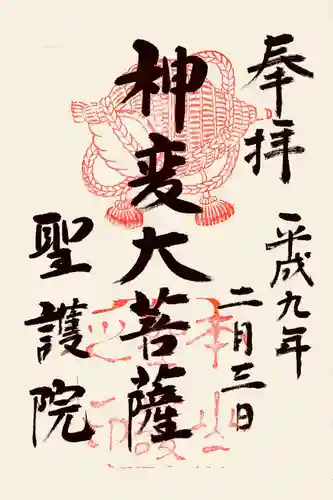 奉拝
平成九年
二月三日
神変大菩薩
聖護院